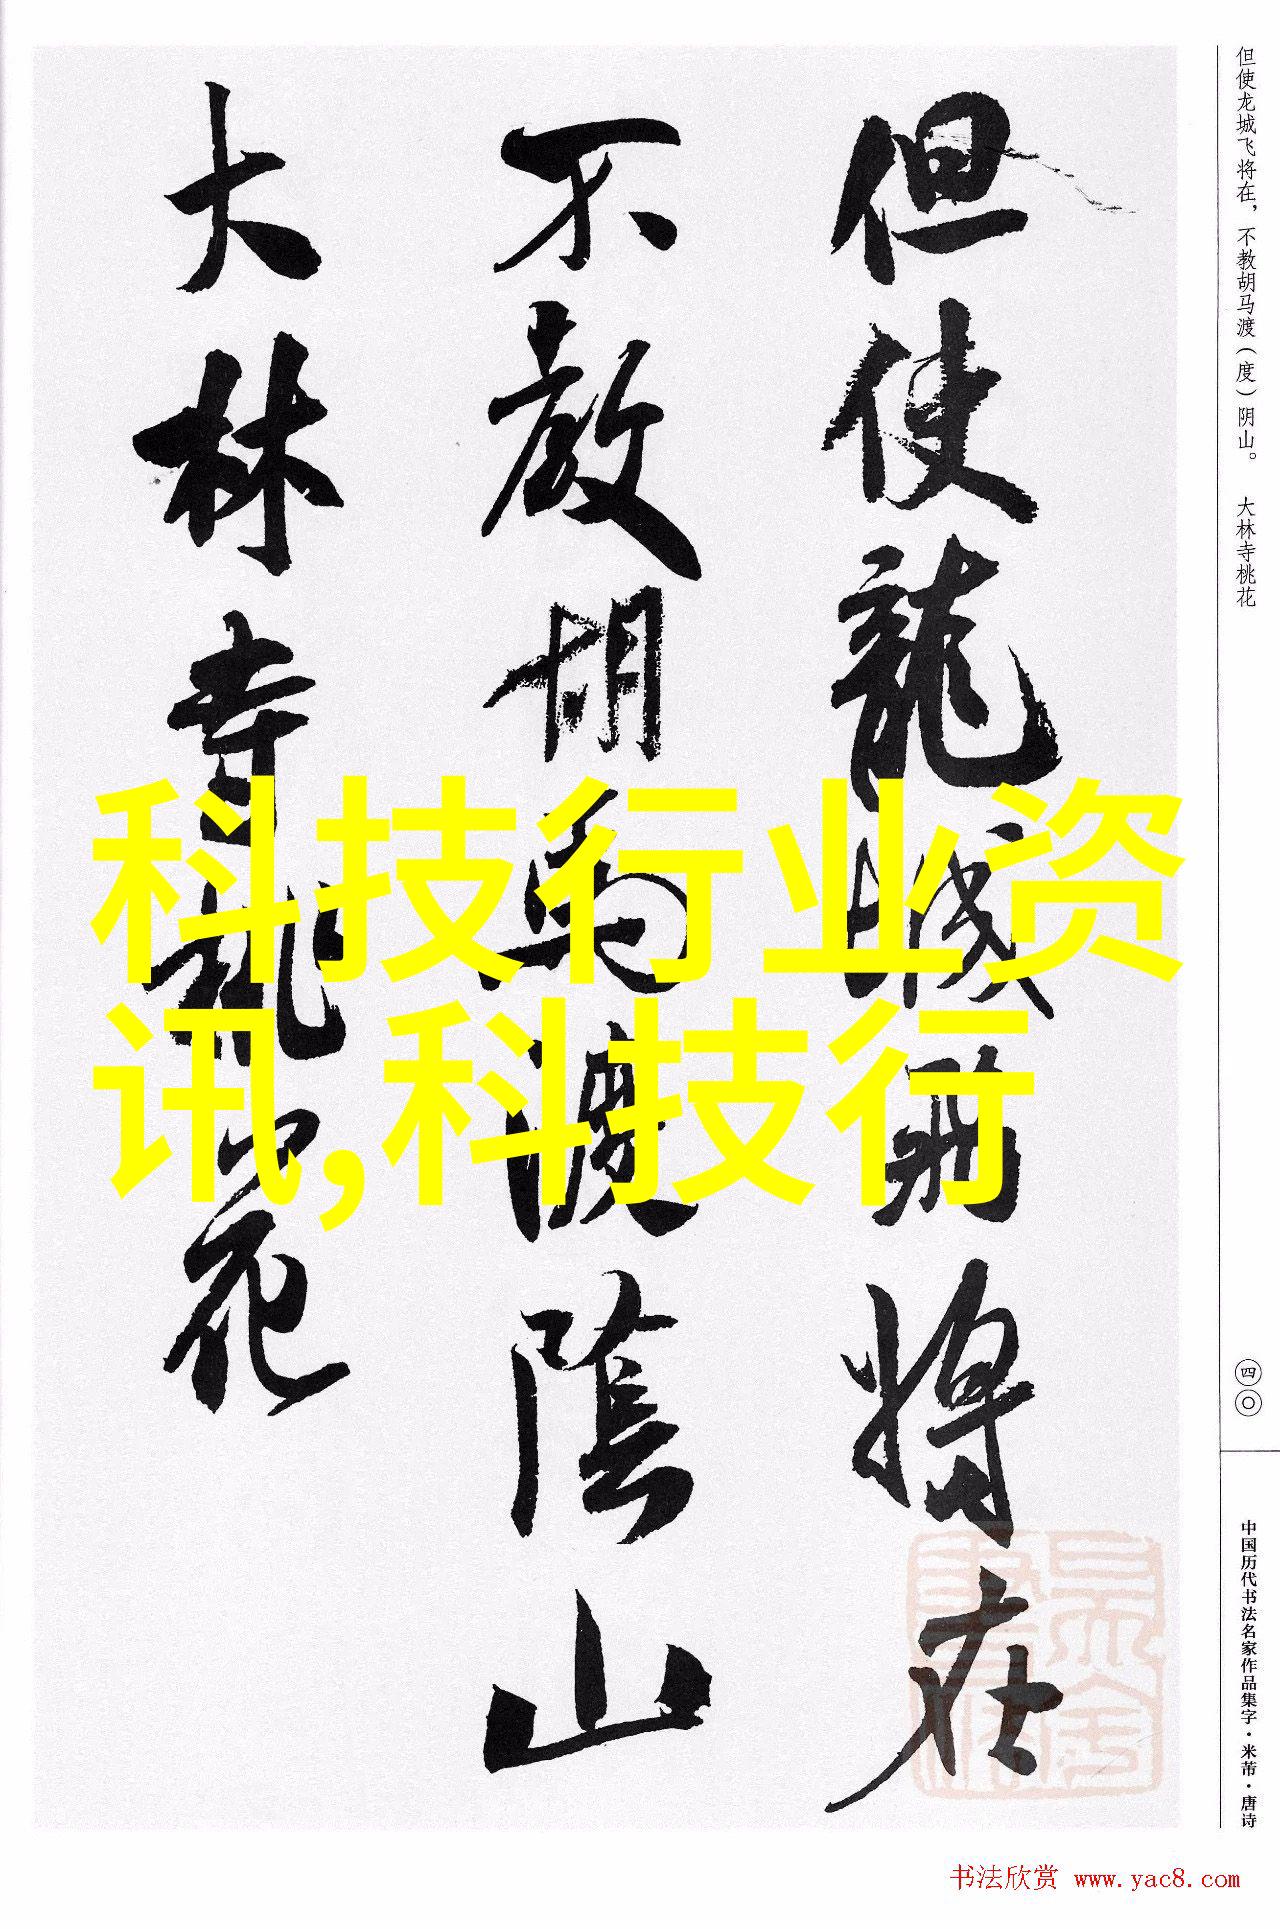 但使龍城飛將在
不教胡馬渡陰山
大林寺桃花
科技行业资
讯,科技行
但使龙城飞将在，不教胡马渡（度）阴山。 大林寺桃花
四〇
中国历代书法名家作品集字·米芾·唐诗
书法欣赏 www.yac8.com